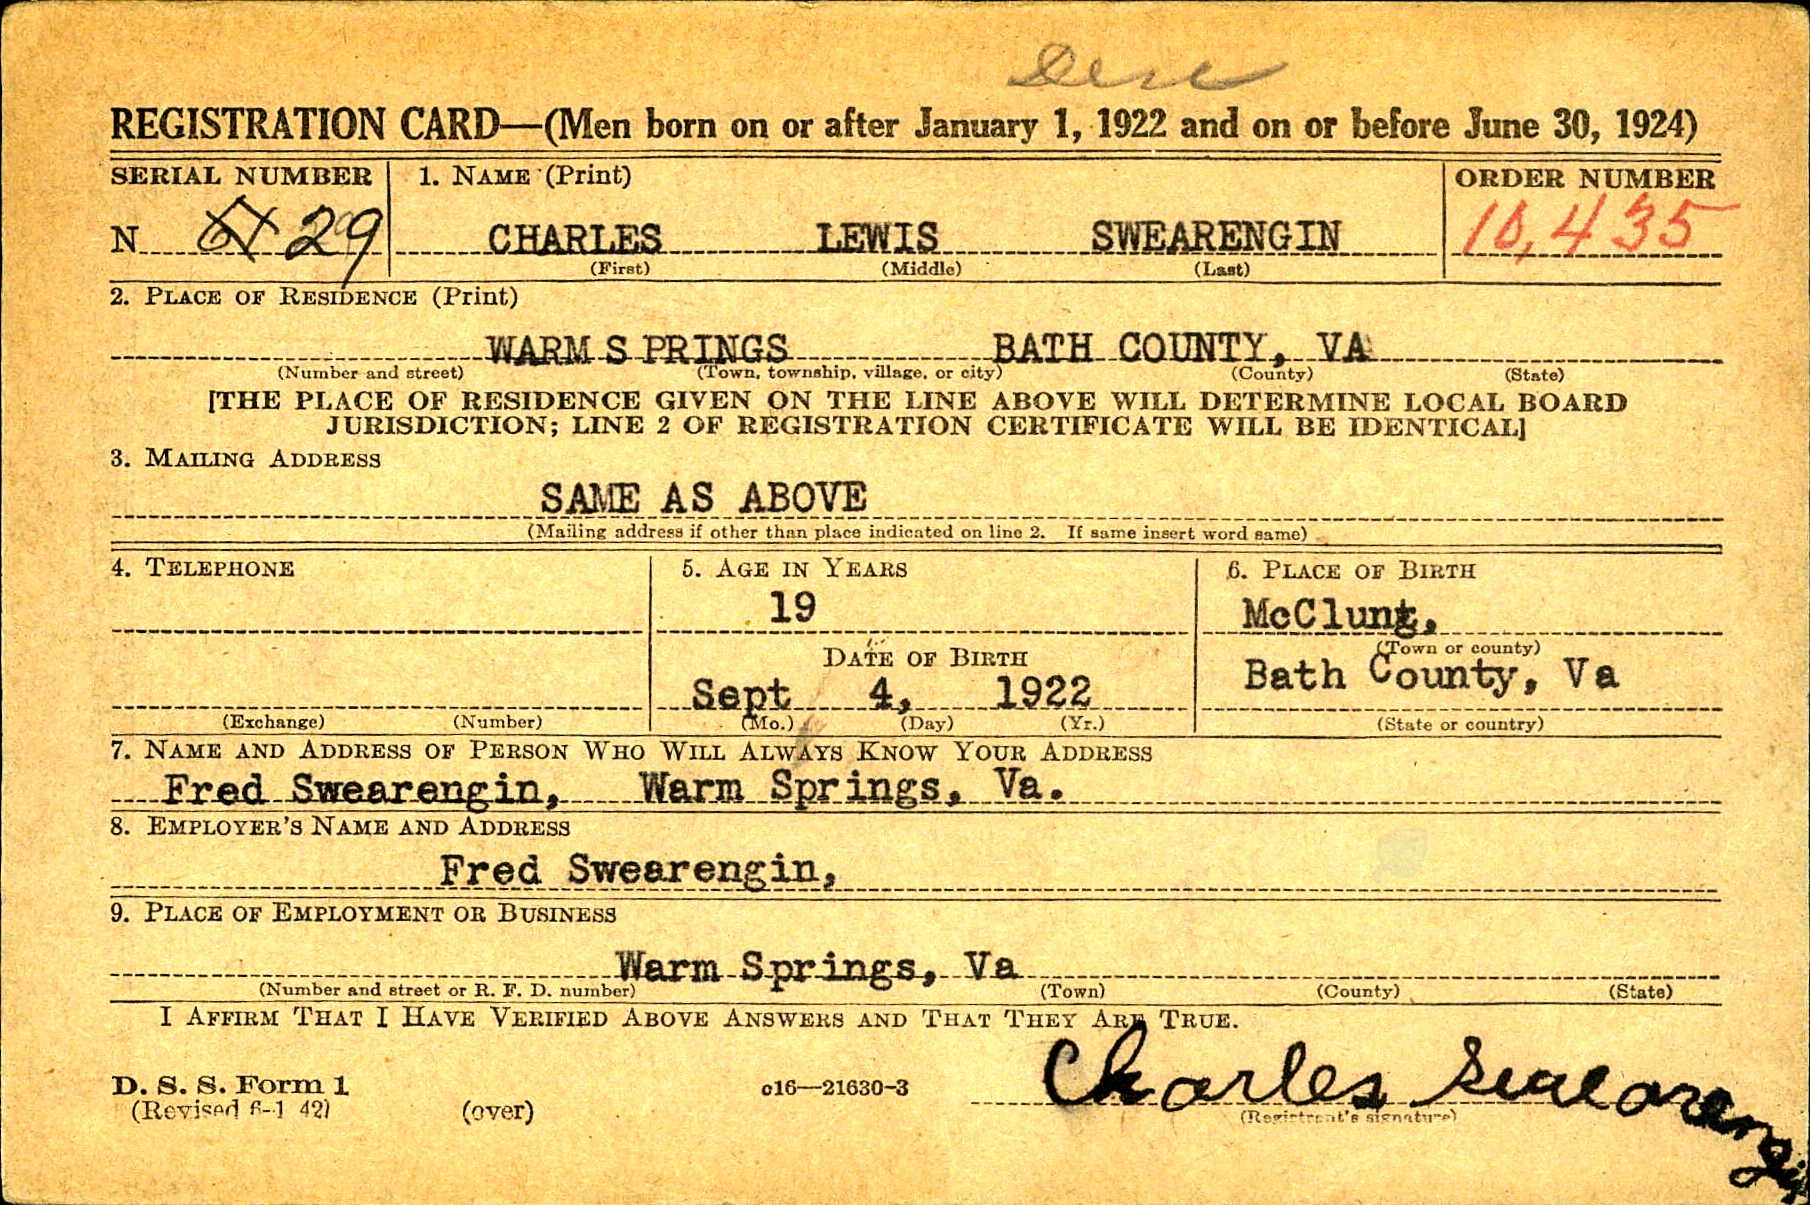 Dece
REGISTRATION CARD—(Men born on or after January 1, 1922 and on or before June 30, 1924)
SERIAL NUMBER 1. NAME (Print) ORDER NUMBER
N 29 CHARLES LEWIS SWEARENGIN 10,435
(First) (Middle) (Last)
2. PLACE OF RESIDENCE (Print)
WARM S PRINGS BATH COUNTY, VA
(Number and street) (Town, township, village, or city) (County) (State)
[THE PLACE OF RESIDENCE GIVEN ON THE LINE ABOVE WILL DETERMINE LOCAL BOARD
JURISDICTION; LINE 2 OF REGISTRATION CERTIFICATE WILL BE IDENTICAL]
3. MAILING ADDRESS
SAME AS ABOVE
(Mailing address if other than place indicated on line 2. If same insert word same)
4. TELEPHONE 5. AGE IN YEARS 6. PLACE OF BIRTH
19 McClung,
DATE OF BIRTH (Town or county)
Sept 4, 1922 Bath County, Va
(Exchange) (Number) (Mo.) (Day) (Yr.) (State or country)
7. NAME AND ADDRESS OF PERSON WHO WILL ALWAYS KNOW YOUR ADDRESS
Fred Swearengin, Warm Springs, Va.
8. EMPLOYER'S NAME AND ADDRESS
Fred Swearengin,
9. PLACE OF EMPLOYMENT OR BUSINESS
Warm Springs, Va
(Number and street or R. F. D. number) (Town) (County) (State)
I AFFIRM THAT I HAVE VERIFIED ABOVE ANSWERS AND THAT THEY ARE TRUE.
D. S. S. Form 1 c16—21630-3 Charles Swearengin
(Revised 6-1 42) (over) (Registrant's signature)